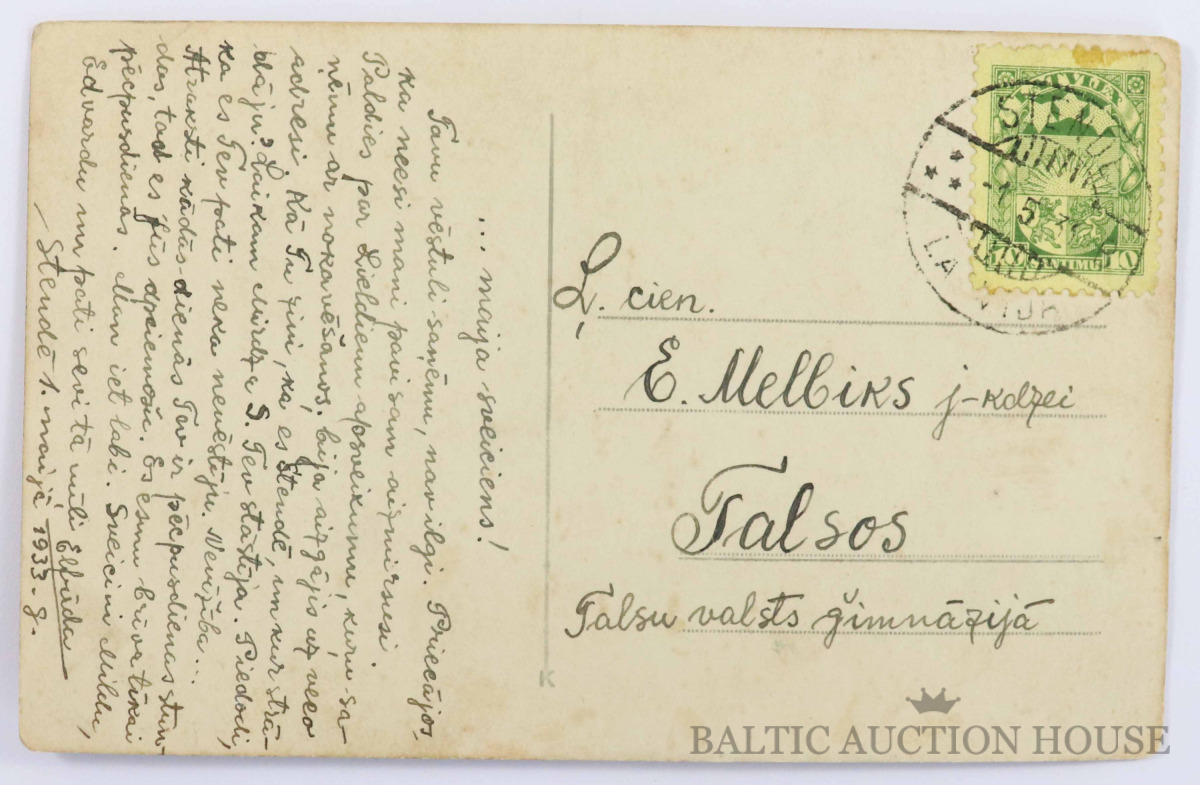 ... maija sveiciens!
Tavu vēstuli saņēmu, nav ilgi. Priecājos,
ka neesi mani pavisam aizmirsusi.
Paldies par Lieldienu apsveikumu, kuru sa-
ņēmu ar nokavēšanos, bija aizgājis uz veco
adresi. Kā Tu zini, ka es Stendē, un kur strā-
dāju? Laikam Mirdza S. Tev stāstīja. Piedodi,
ka es Tev pati neka nevēstīju. Nevīžība...
Atraksti kādās dienās Tev ir pēcpusdienas stun-
das, tad es jūs apciemošu. Es esmu brīva tikai
pēcpusdienās. Man iet labi. Sveicini Mildu,
Edvardu un pati sevi tā mīļi Elfrīda
Stendē 1. maijā 1933. g.
Ļ. cien.
E. Melbiks j-kdzei
Talsos
Talsu valsts ģimnāzijā
K
LATVIJA
10 SANTIMU 10
STENDE
LATVIJA
BALTIC AUCTION HOUSE